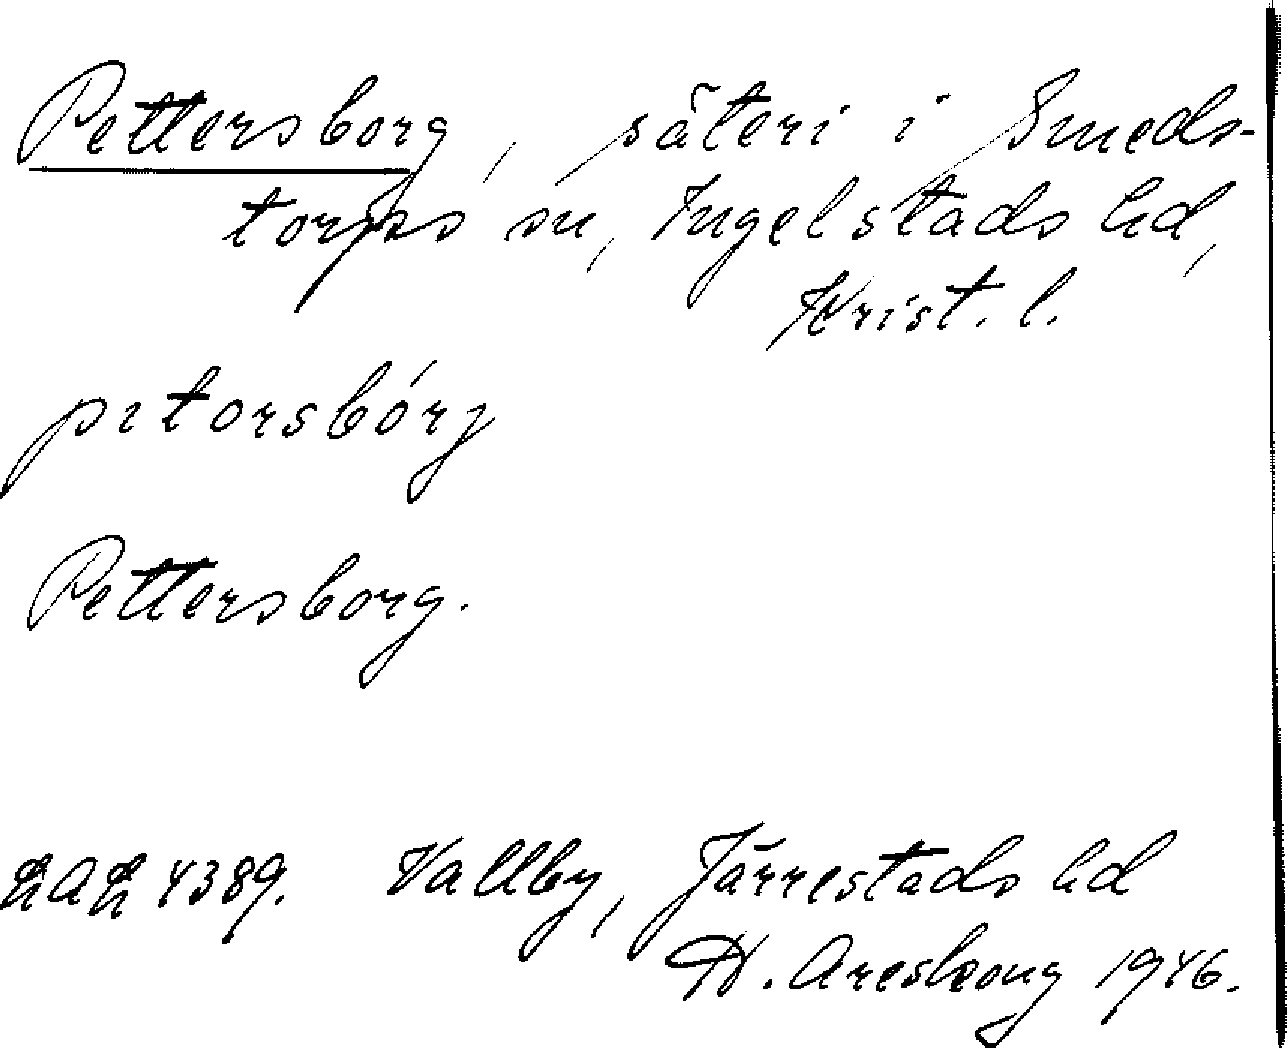 Pettersborg, säteri i Smeds-
torps sn, Ingelstads hd,
Krist. l.
pɪtorsbórj
Pettersborg.
4389. Vallby, Järrestads hd
1946.